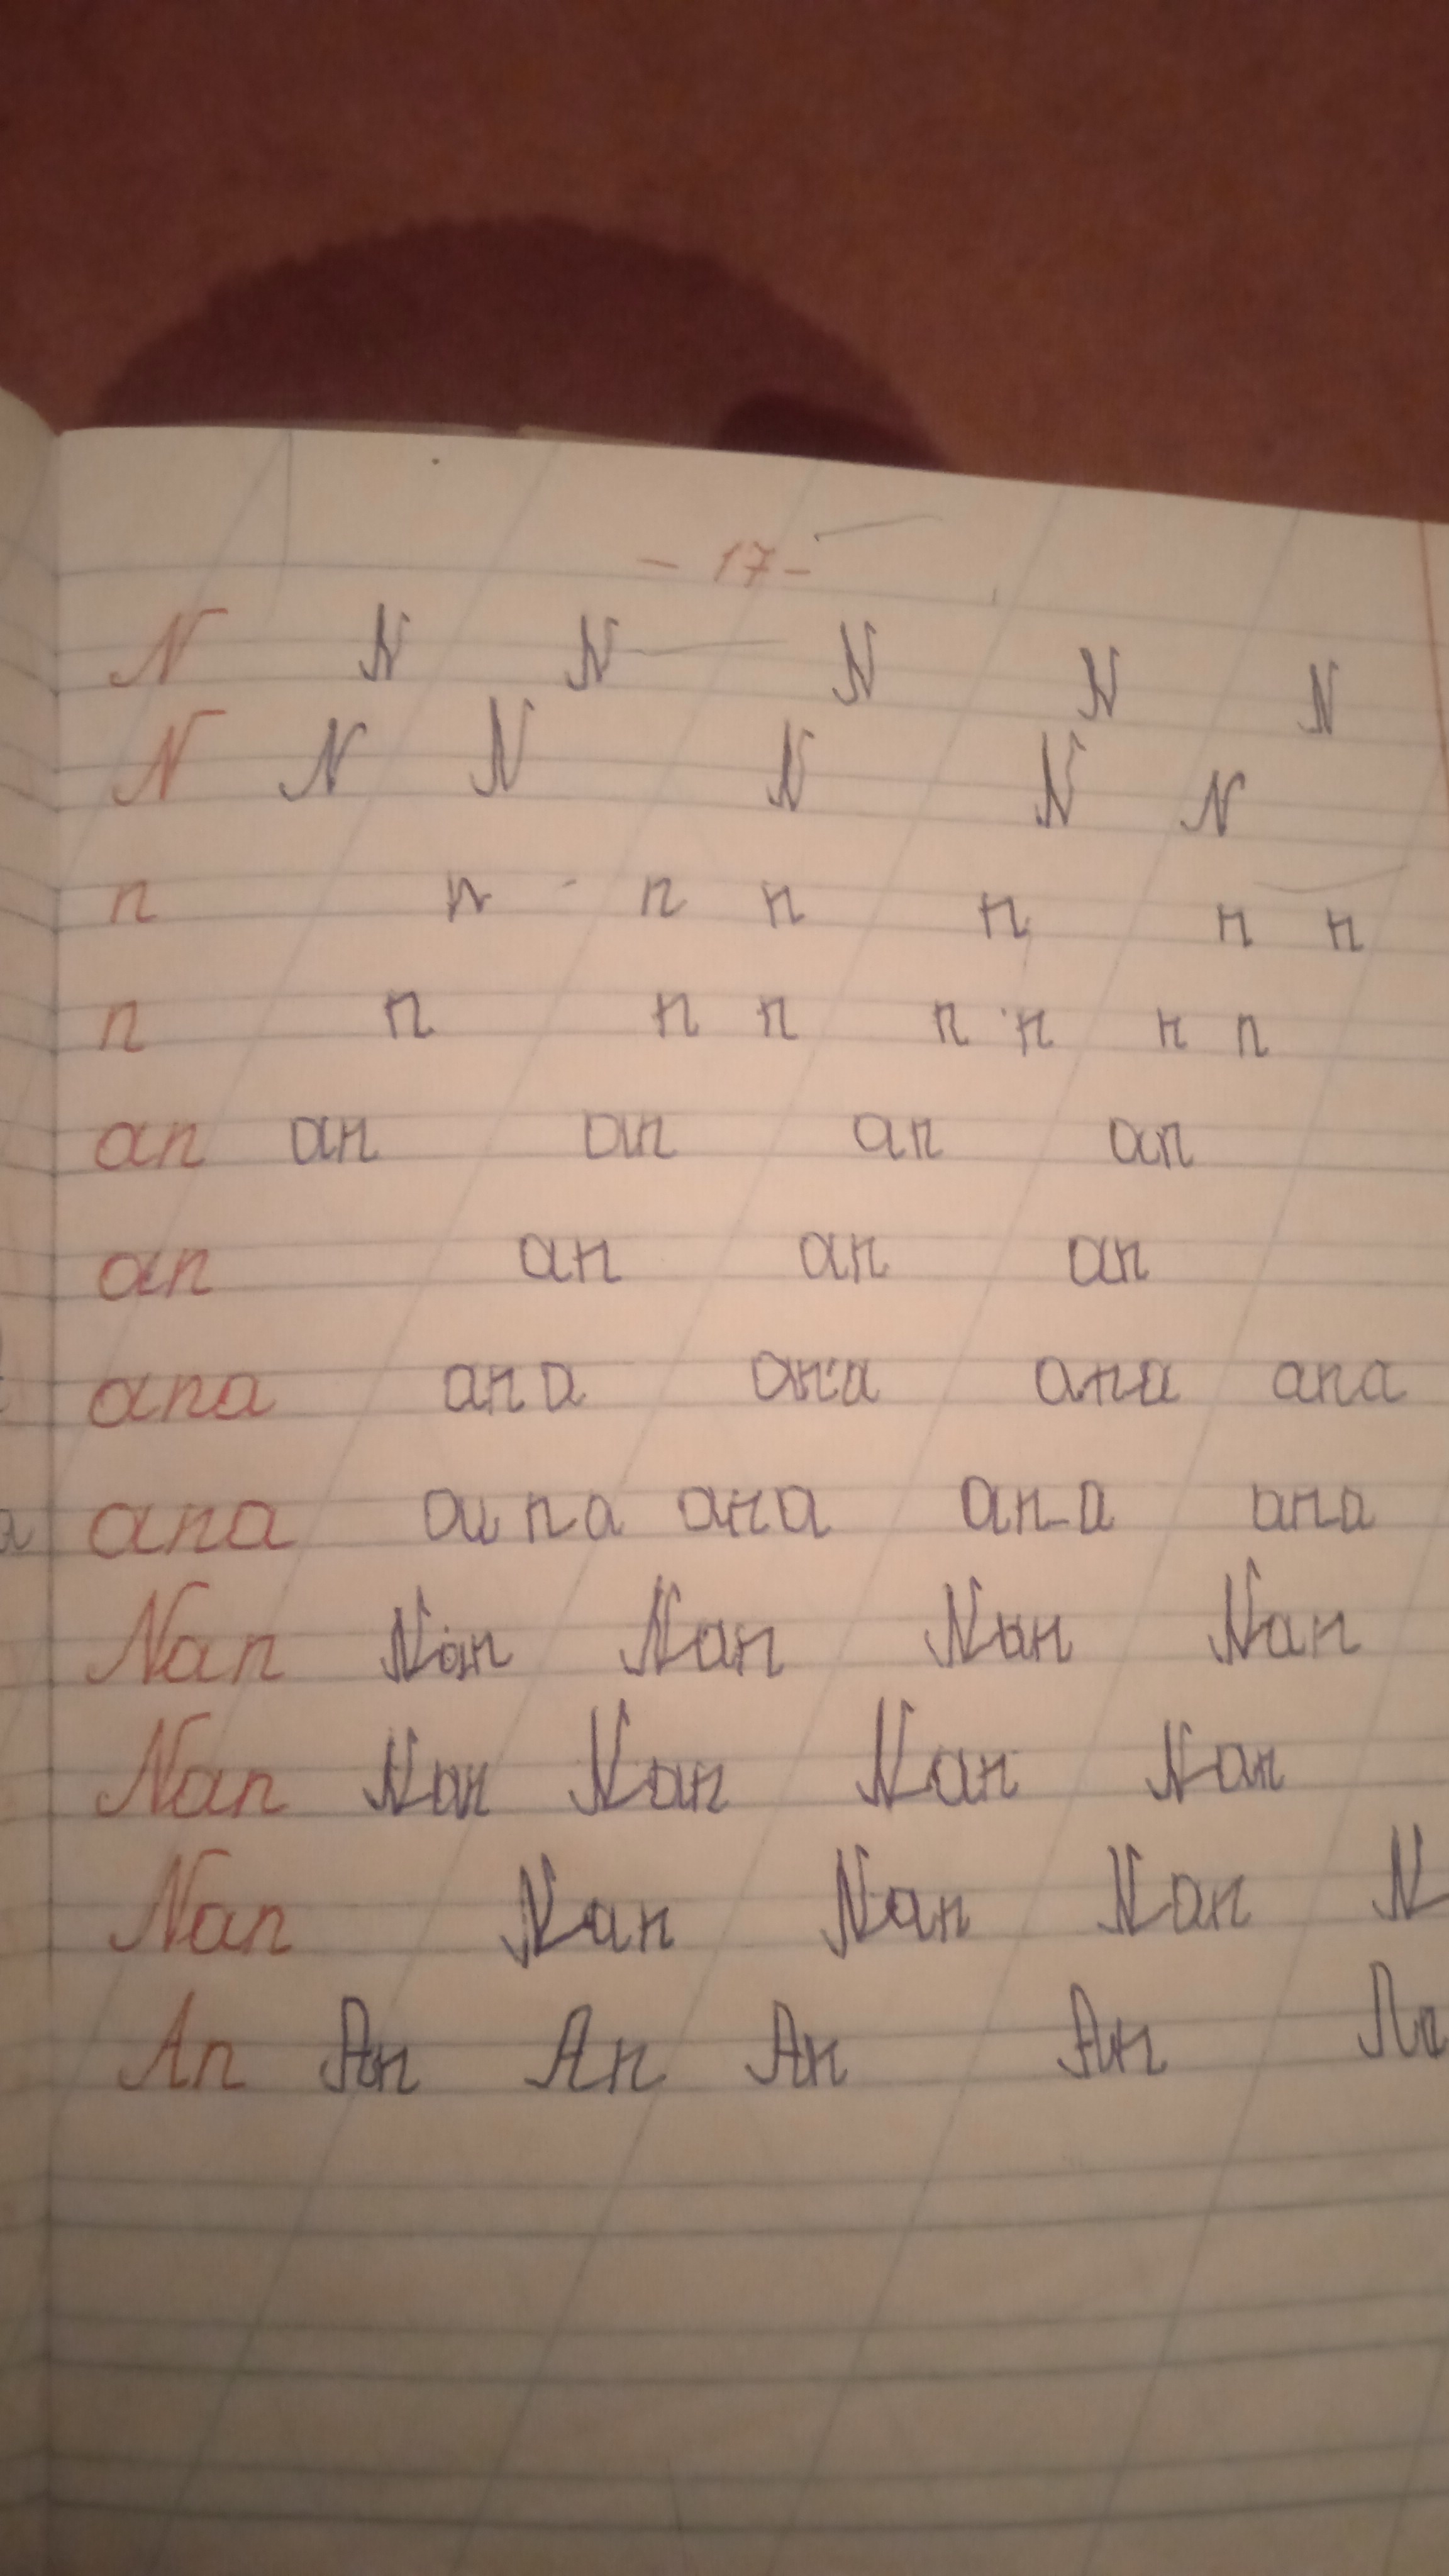 - 17 -
N N N N N N
N N N N N N
n n n n n n n
n n n n n n n n
an an an an an
an an an an
ana ana ana ana ana
ana au na ana ana ana
Nan Nan Nan Nan Nan
Nan Nan Nan Nan Nan
Nan Nan Nan Nan N
An An An An An